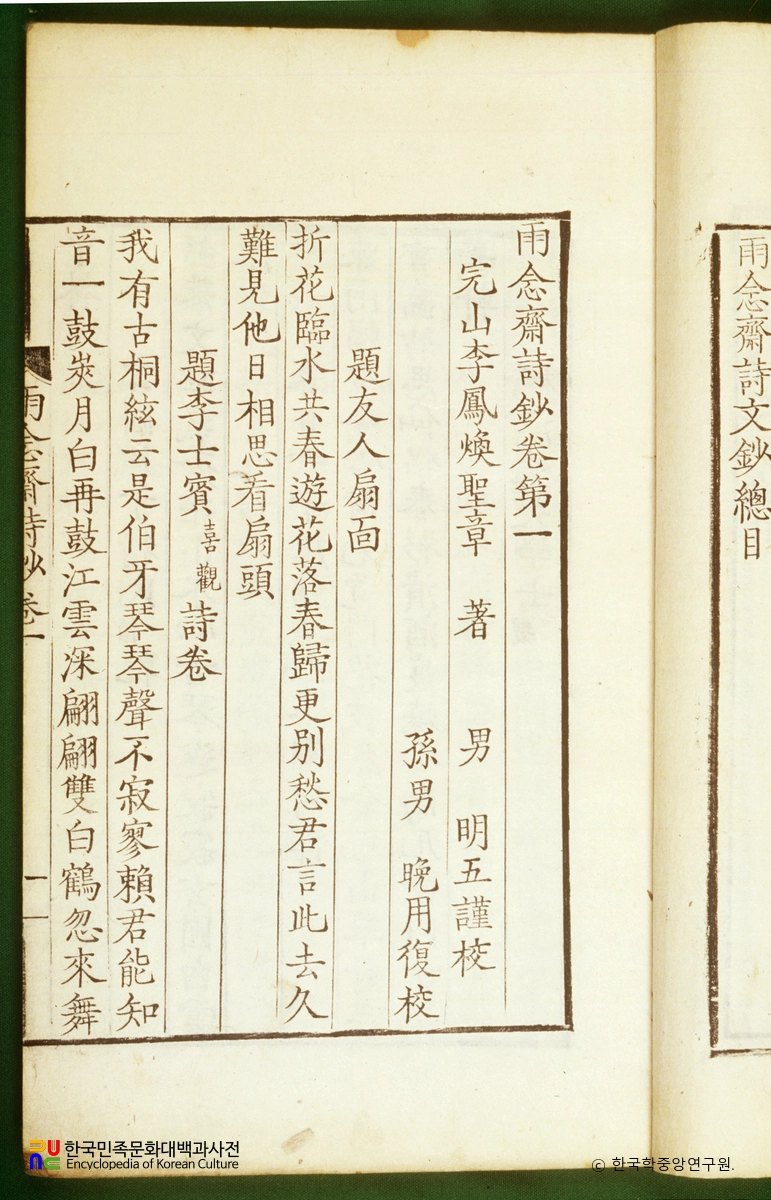 雨念齋詩文鈔總目
雨念齋詩鈔卷第一
完山李鳳煥聖章 著 男 明五謹校
孫男 晩用復校
題友人扇面
折花臨水共春遊花落春歸更別愁君言此去久
難見他日相思看扇頭
題李士賓喜觀詩卷
我有古桐絃云是伯牙琴琴聲不寂寥賴君能知
音一鼓爽月白再鼓江雲深翩翩雙白鶴忽來舞
雨念齋詩鈔 卷一 一
한국민족문화대백과사전
Encyclopedia of Korean Culture
© 한국학중앙연구원.